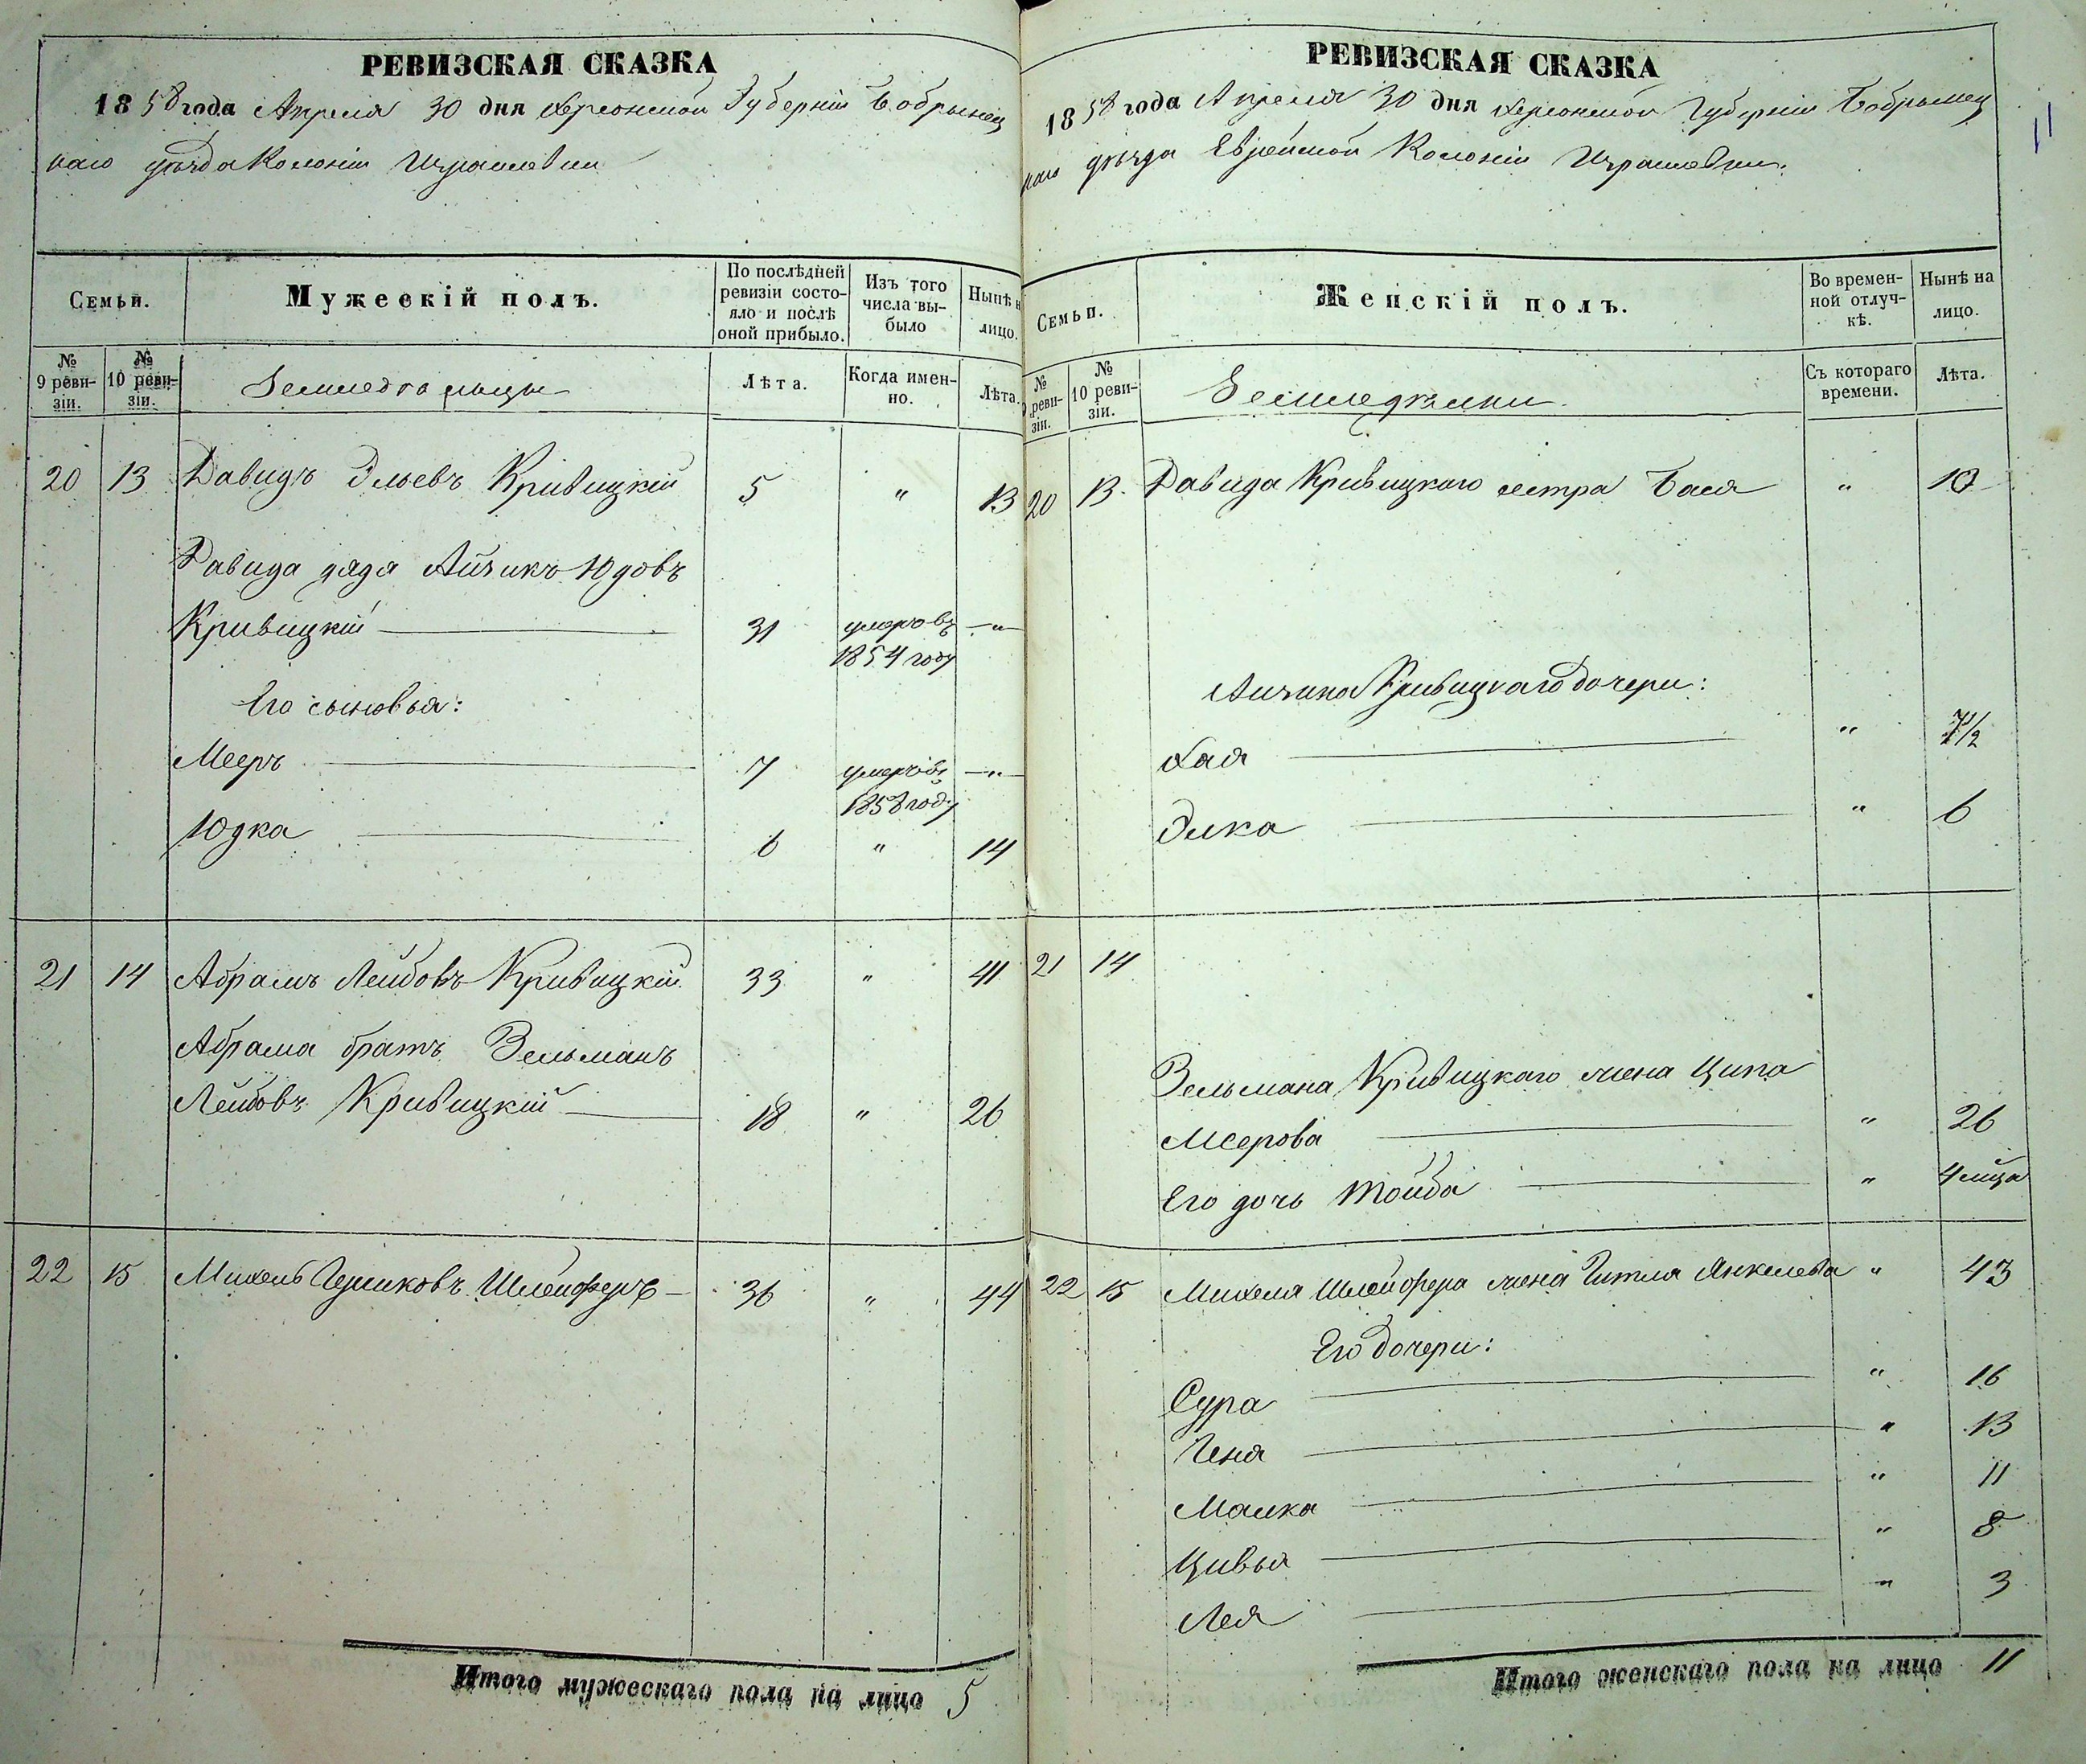 РЕВИЗСКАЯ СКАЗКА
1858 года Апреля 30 дня Херсонской Губерніи Бобринец
каго уѣзда Колоніи Израилевки
Семьи.
Мужескій полъ.
По послѣдней ревизіи состояло и послѣ оной прибыло.
Изъ того числа выбыло
Нынѣ н лицо.
№ 9 ревизіи.
№ 10 ревизіи.
Земледѣльцы
Лѣта.
Когда именно.
Лѣта.
20 13 Давидъ Эльевъ Кривицкій 5 " 13
Давида дядя Айзикъ Юдовъ
Кривицкій 31 умеръ въ 1854 году — " —
Его сыновья:
Мееръ 7 умеръ въ 1858 году — " —
Юдка 6 " 14
21 14 Абрамъ Лейбовъ Кривицкій 33 " 41
Абрама братъ Зельманъ
Лейбовъ Кривицкій 18 " 26
22 15 Михель Гершковъ Шлейферъ 36 " 44
Итого мужескаго пола на лицо 5
РЕВИЗСКАЯ СКАЗКА
1858 года Апреля 30 дня Херсонской Губерніи Бобринец
каго уѣзда Еврейской Колоніи Израилевки.
11
Семьи.
Женскій полъ.
Во временной отлучкѣ.
Нынѣ на лицо.
№ 9 ревизіи.
№ 10 ревизіи.
Земледѣлки
Съ котораго времени.
Лѣта.
20 13. Давида Кривицкаго сестра Бася "
Айзика Кривицкаго дочери:
Хая " 7½
Элка " 6
21 14
Зельмана Кривицкаго жена Ципа
Меерова " 26
Его дочь Тойба " 4 мѣца
22 15 Михеля Шлейфера жена Гитля Янкелева " 43
Его дочери:
Сура " 16
Геня " 13
Малка " 11
Цивья " 8
Лея " 3
Итого женскаго пола на лицо 11